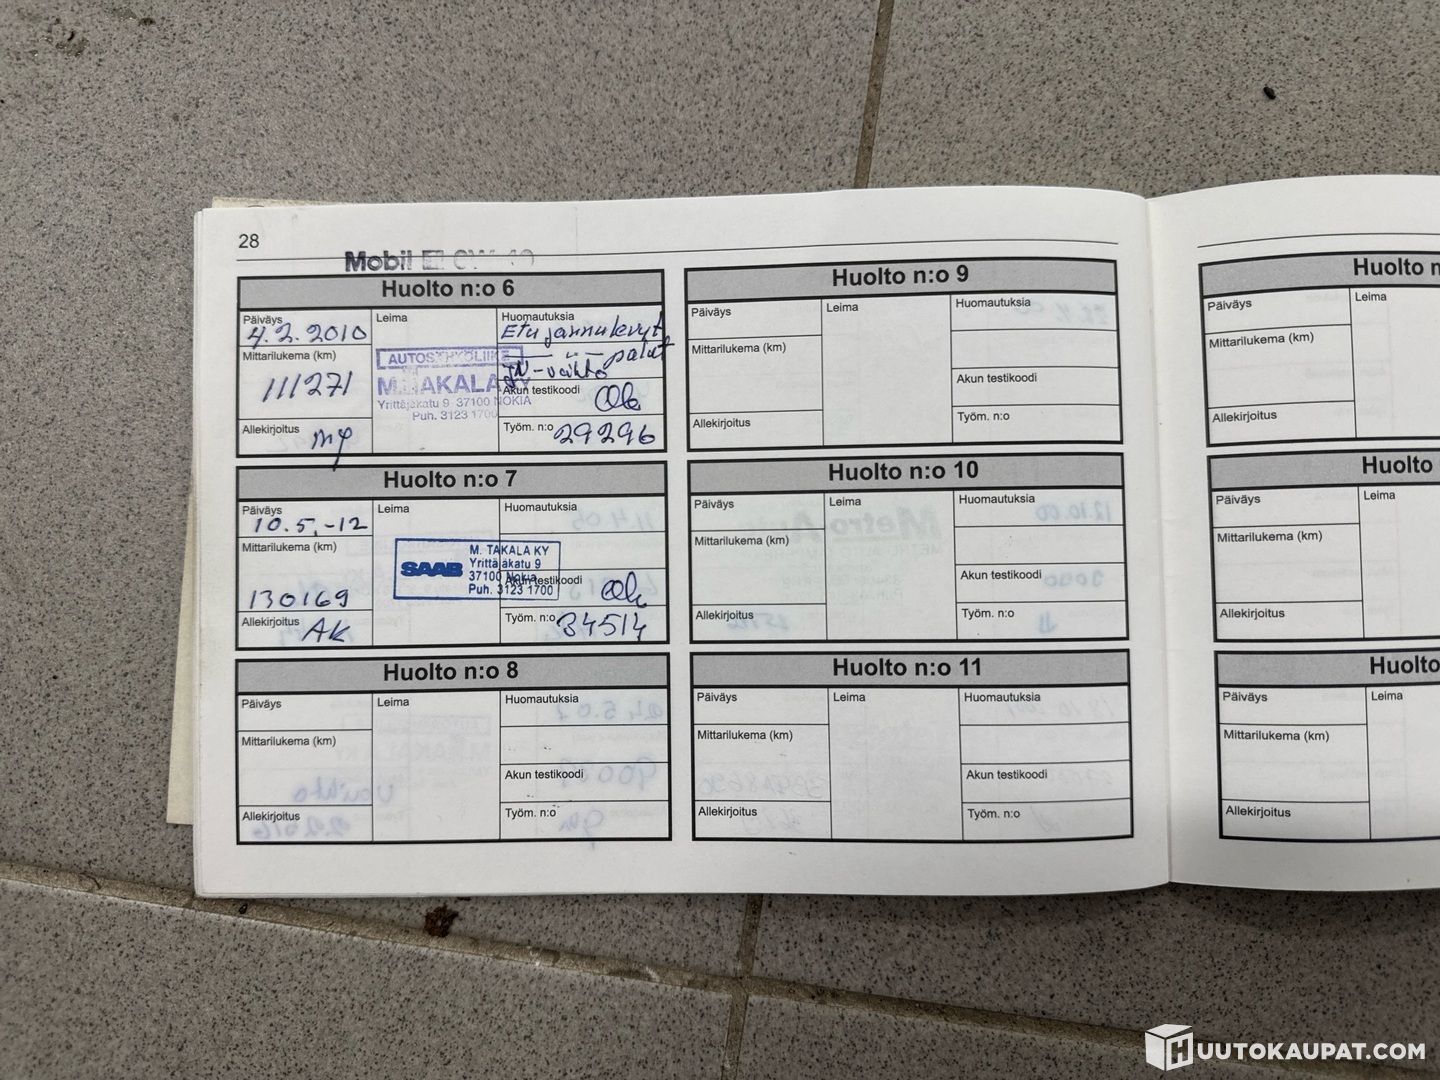 28
Mobil
Huolto n:o 6
Päiväys
4.2.2010
Mittarilukema (km)
111271
Allekirjoitus
Leima
AUTOSÄHKÖLIIKE
M. TAKALA KY
Yrittäjäkatu 9 37100 NOKIA
Puh. 3123 1700
Huomautuksia
Etujarrulevyt
— " — palat
JN-vaihto
Akun testikoodi
Ok
Työm. n:o
29296
Huolto n:o 7
Päiväys
10.5.-12
Mittarilukema (km)
130169
Allekirjoitus
AK
Leima
SAAB
M. TAKALA KY
Yrittäjäkatu 9
37100 Nokia
Puh. 3123 1700
Huomautuksia
Akun testikoodi
Ok
Työm. n:o
34514
Huolto n:o 8
Päiväys
Mittarilukema (km)
Allekirjoitus
Leima
Huomautuksia
Akun testikoodi
Työm. n:o
Huolto n:o 9
Päiväys
Mittarilukema (km)
Allekirjoitus
Leima
Huomautuksia
Akun testikoodi
Työm. n:o
Huolto n:o 10
Päiväys
Mittarilukema (km)
Allekirjoitus
Leima
Huomautuksia
Akun testikoodi
Työm. n:o
Huolto n:o 11
Päiväys
Mittarilukema (km)
Allekirjoitus
Leima
Huomautuksia
Akun testikoodi
Työm. n:o
Huolto n
Päiväys
Mittarilukema (km)
Allekirjoitus
Leima
Huolto
Päiväys
Mittarilukema (km)
Allekirjoitus
Leima
Huolto
Päiväys
Mittarilukema (km)
Allekirjoitus
Leima
HUUTOKAUPAT.COM